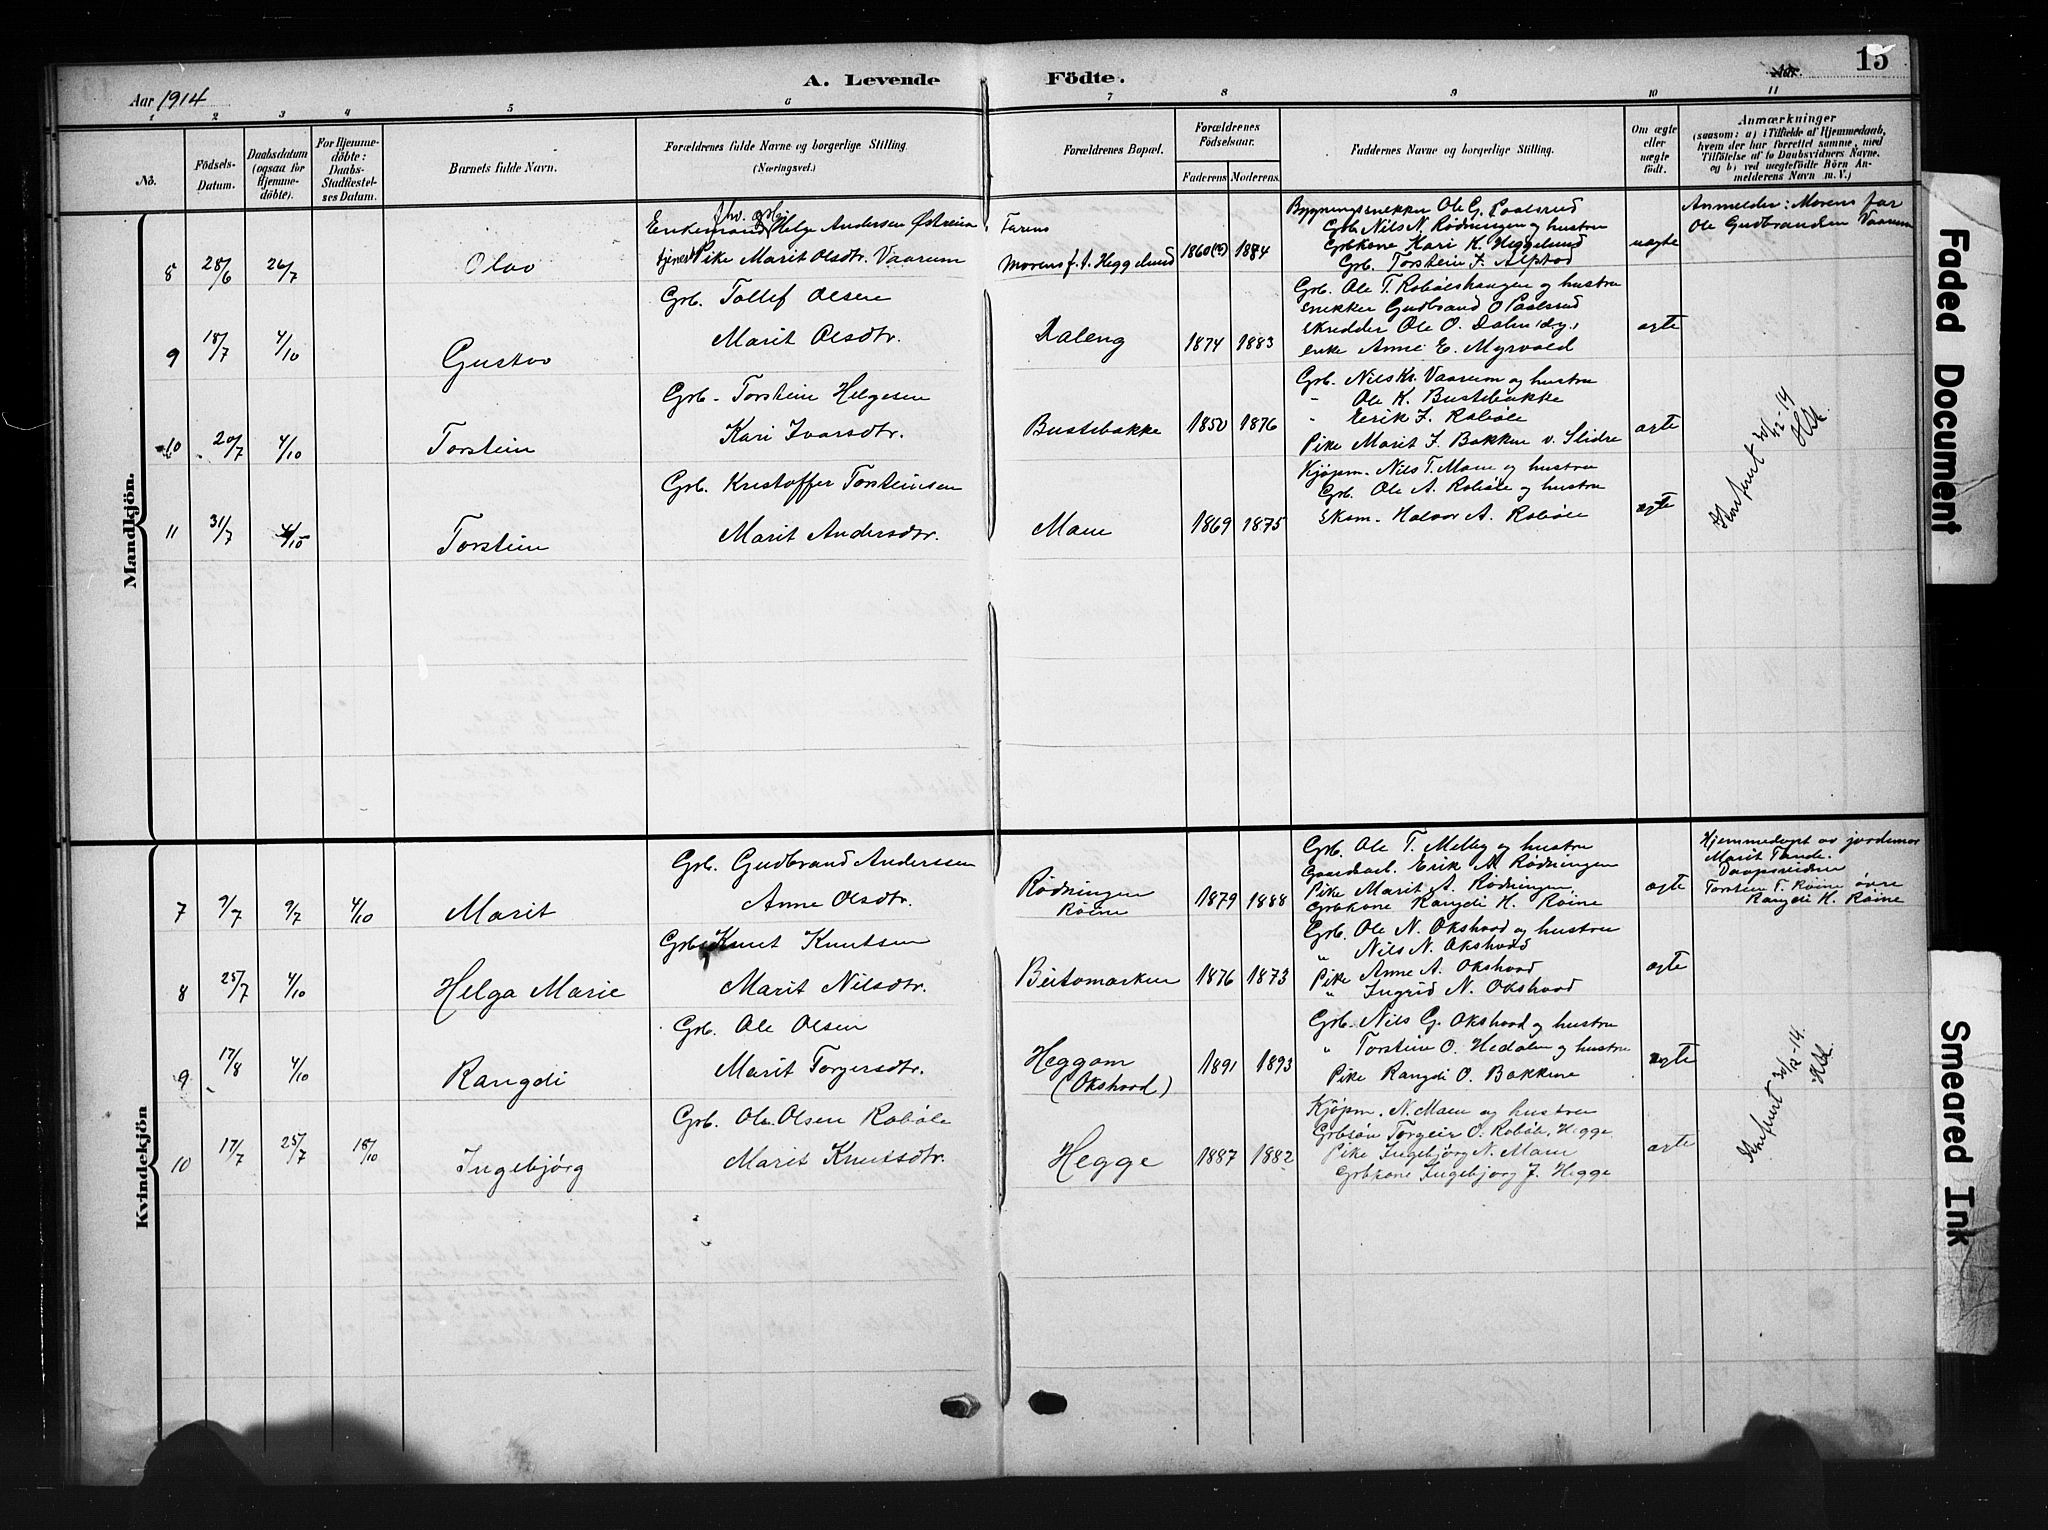 15
A. Levende Födte.
Aar 1914
Aar.
1 2 3 4 5 6 7 8 9 10 11
No.
Födsels-
Datum.
Daabsdatum
(ogsaa for
Hjemme-
döbte).
For Hjemme-
döbte:
Daabs-
Stadfæstel-
ses Datum.
Barnets fulde Navn.
Forældrenes fulde Navne og borgerlige Stilling
(Næringsvei.)
Forældrenes Bopæl.
Forældrenes
Födselsaar.
Faderens. Moderens.
Faddernes Navne og borgerlige Stilling.
Om ægte
eller
uægte
födt.
Anmærkninger
(saasom: a) i Tilfælde af Hjemmedaab,
hvem der har forrettet samme, med
Tilföielse af to Daabsvidners Navne.
og b) ved uægtefödte Börn An-
melderens Navn m. V.)
Mandkjön.
8 28/6 26/7 Olav
Enkemand Helge Andersen Østreim
tjenes Pike Marit Olsdtr. Vaarum
Farens
Morens f. t. Heggelund
1860(?) 1884
Bygningssnekker Ole G. Paalsrud
Grb. Nils N. Rødningen og hustru
Grbkone Kari K. Heggelund
Grb. Torstein J. Alpstad
uægte
Anmelder: Morens far
Ole Gudbranden Vaarum
9 18/7 4/10 Gustav
Grb. Tollef Olsen
Marit Olsdtr.
Daleng
1874 1883
Grb. Ole T. Robølshaugen og hustru
snekker Gudbrand O Paalsrud
skredder Ole O. Dahn
enke Anne E. Myrvold
ægte
10 20/7 4/10 Torstein
Grb. Torstein Helgesen
Kari Ivarsdtr.
Bustebakke
1850 1876
Grb. Nils Kr. Vaarum og hustru
" Ole K. Bustebakke
" Eerik J. Robøle
Pike Marit J. Bakken v. Slidre
ægte
11 31/7 4/10 Torstein
Grb. Kristoffer Torsteinsen
Marit Andersdtr.
Moen
1869 1875
Kjøpm. Nils T. Moen og hustru
Grb. Ole A. Robøle og hustru
Skom. Halvor A. Robøle
ægte
Konferert 30/12-14
Kvindekjön
7 9/7 9/7 4/10 Marit
Grb. Gudbrand Anderssen
Anne Olsdtr.
Rødningen
Røine
1879 1888
Grb. Ole T. Melby og hustru
Gaardarb. Erik A. Rødningen
Pike Marit A. Rødningen
Grbkone Rangdi H. Røine
ægte
Hjemmedøpt av jordemor
Marit Tande.
Daapsvidner
Torstein T. Røine øvre
Rangdi H. Røine
8 25/7 4/10 Helga Marie
Grb. Knut Knutsen
Marit Nilsdtr.
Beitomarken
1876 1873
Grb. Ole N. Okshovd og hustru
" Nils N. Okshovd
Pike Anne A. Okshovd
" Ingrid N. Okshovd
ægte
9 17/8 4/10 Rangdi
Grb. Ole Olsen
Marit Torgersdtr.
Heggom
(Okshovd)
1891 1893
Grb. Nils G. Okshovd og hustru
" Torstein O. Hedalen og hustru
Pike Rangdi O. Bakkene
ægte
10 17/7 25/7 18/10 Ingebjørg
Grb. Ole Olsen Robøle
Marit Knutsdtr.
Hegge
1887 1882
Kjøpm. N. Moen og hustru
Grbsøn Torgeir O. Robøle, Hegge
Pike Ingebjørg N. Moen
Grbkone Ingebjørg J. Hegge
ægte
Konferert 30/12-14.
Faded Document
Smeared Ink